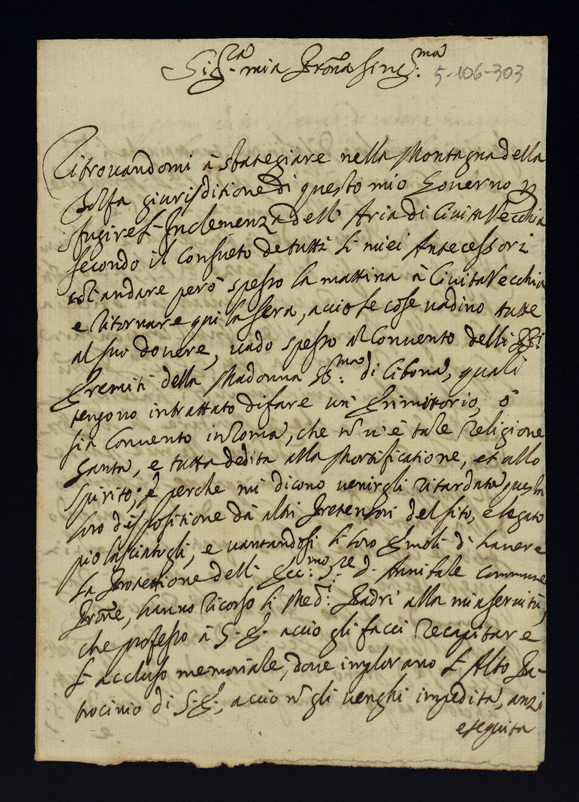 Sig.ra mia Prona sing.ma 5-106-303
Ritrouandomi à stategiare nella Montagna della
Tolfa giurisditione di questo mio Gouerno p
sfugire l'Inclemenza dell'Aria di CiuitaVecchia
secondo il Consueto de tutti li miei Antecessori
col andare però spesso la mattina à CiuitaVecchia
e ritornare qui la sera, acciò le cose uadino tutte
al suo douere, uado spesso al Conuento delli PP.i
Eremiti della Madonna SS.ma di Cibona, quali
tengono intrattato di fare un' Erimitorio, ò
sia Conuento in Roma, che n u'è tale Religione
Santa, e tutta dedita alla Mortificatione, et allo
Spirito; è perche mi dicono uenirgli ritardata questa
loro dispositione dà altri Pretensori del sito, e legato
pio lasciatogli, e uantandosi li loro Emoli di hauere
la Protettione dell' Ecc.mo Sig.re D. Annibale Commune
Prone, hanno ricorso li Med.i Padri alla mia seruitù,
che professo à S. E. acciò gli facci recapitare
l'accluso memoriale, doue implorano l'Alto Pa-
trocinio di S. E., acciò n gli uenghi impedita, anzi
eseguita